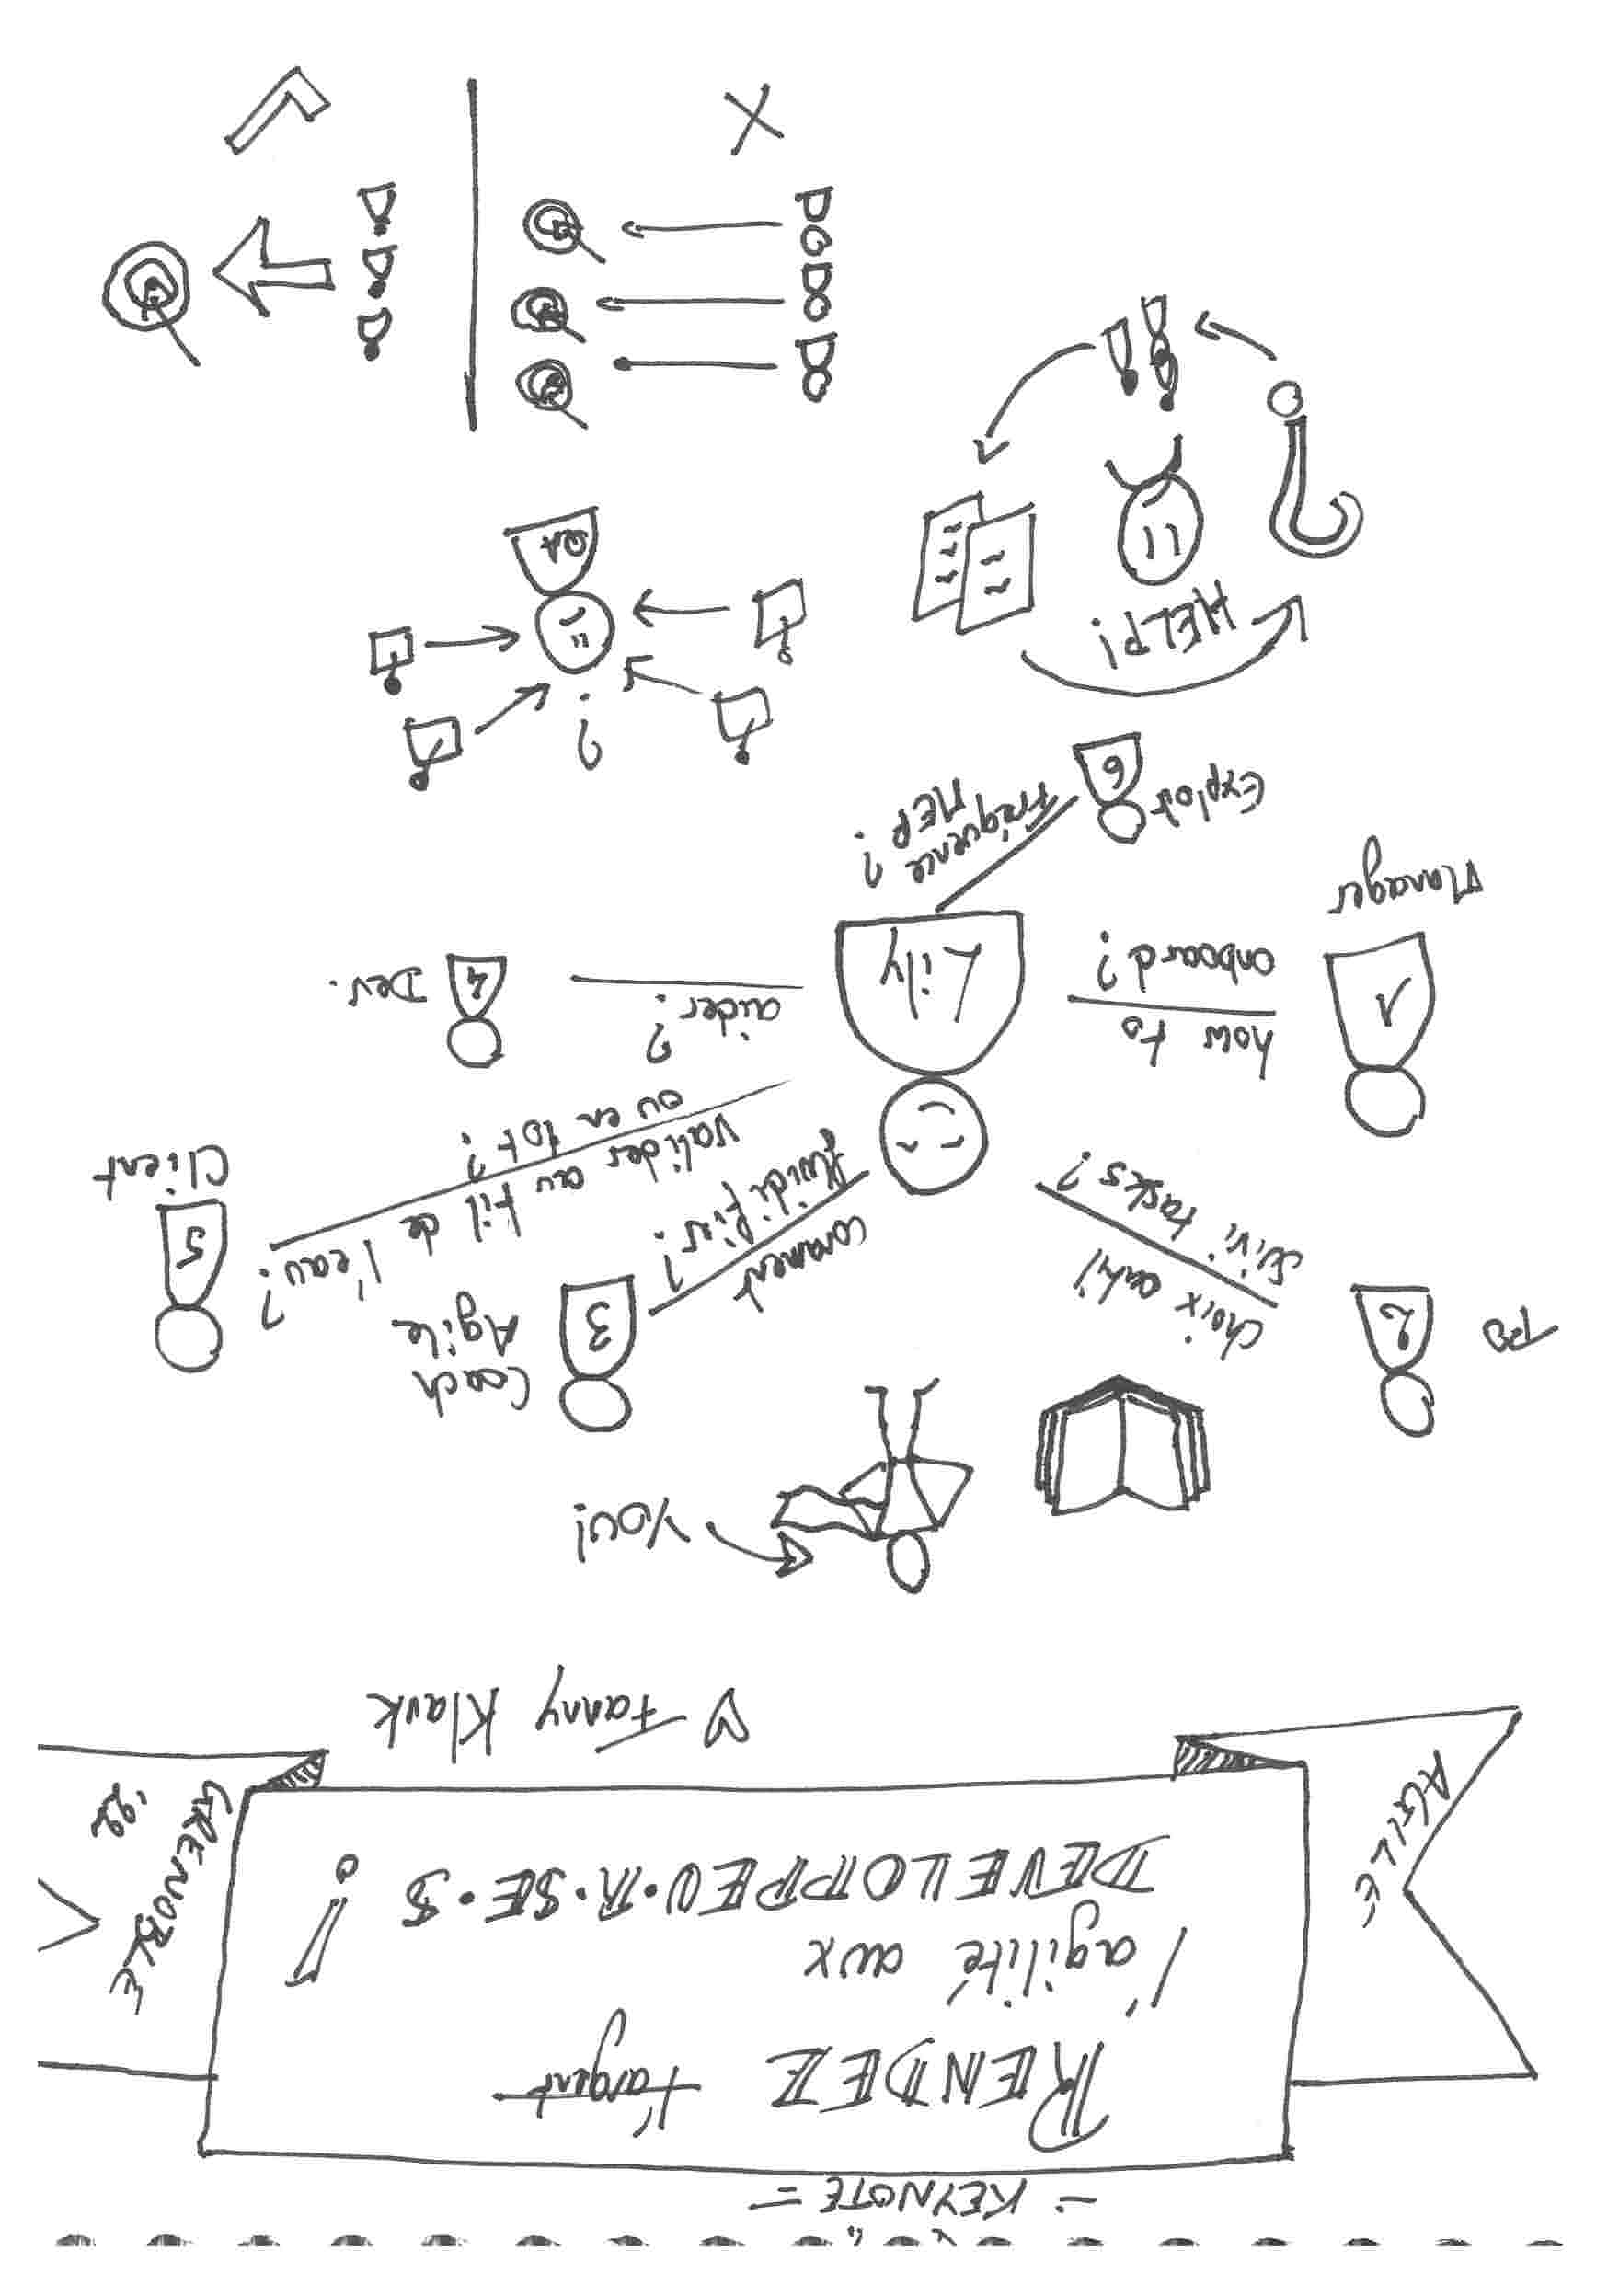 = KEYNOTE =
RENDEZ l'argent
l'agilité aux
DEVELOPPEU•R•SE•S !
AGILE
GRENOBLE
'22
♡ Fanny Klauk
YOU!
PO
2
choix archi
suivi tasks?
Coach
Agile
3
comment
fluidifier?
5
Client
valider au fil de l'eau?
ou en lot?
1
Manager
how to
onboard?
Lily
aider?
4
Dev.
6
Exploit
Fréquence
MEP?
HELP!
?
?
QA